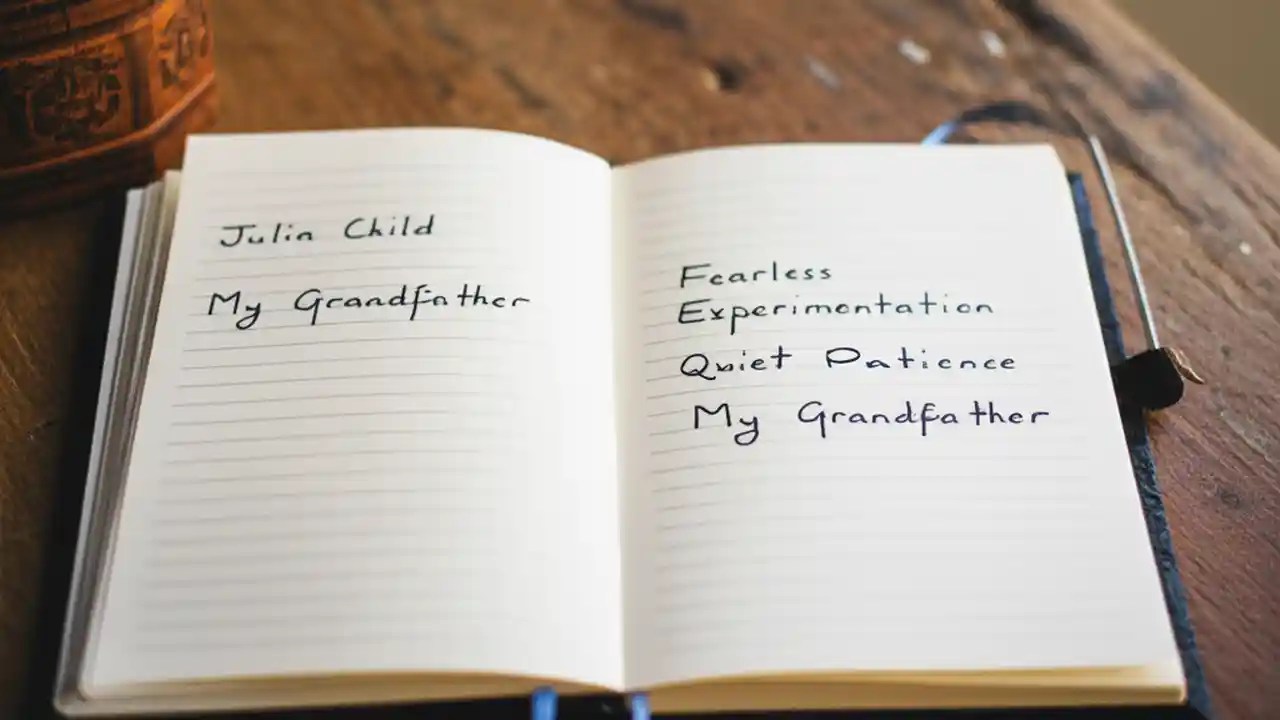 Julia Child
My Grandfather
Fearless
Experimentation
Quiet Patience
My Grandfather